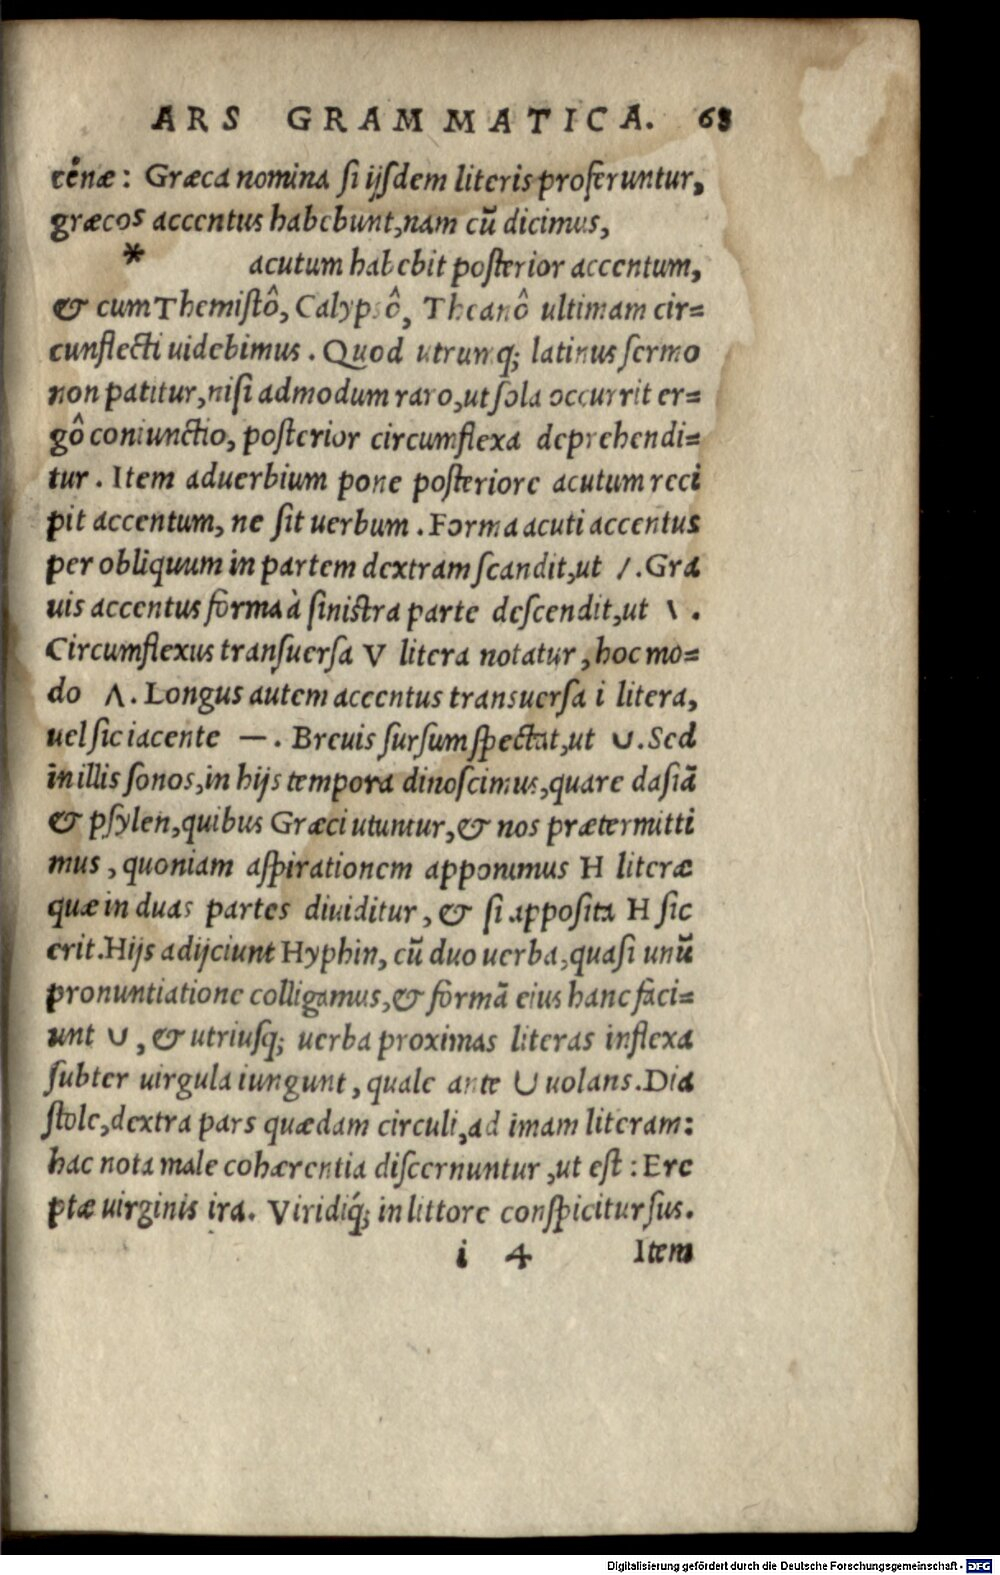 ARS GRAMMATICA. 68
cēnæ: Græca nomina ſi ijſdem literis proferuntur,
græcos accentus habebunt, nam cū dicimus,
* acutum habebit poſterior accentum,
& cum Themiſtô, Calypsô, Theanô ultimam cir=
cunflecti uidebimus. Quod utrumq; latinus ſermo
non patitur, niſi admodum raro, ut ſola occurrit er=
gô coniunctio, poſterior circumflexa deprehendi=
tur. Item aduerbium pone poſteriore acutum reci
pit accentum, ne ſit uerbum. Forma acuti accentus
per obliquum in partem dextram ſcandit, ut /. Gra
uis accentus forma à ſiniſtra parte deſcendit, ut \ .
Circumflexus transuerſa V litera notatur, hoc mo=
do Λ. Longus autem accentus tranſuerſa i litera,
uel ſic iacente —. Breuis ſurſum ſpectat, ut ∪. Sed
in illis ſonos, in hijs tempora dinoſcimus, quare daſiā
& pſylen, quibus Græci utuntur, & nos prætermitti
mus, quoniam aſpirationem apponimus H literæ
quæ in duas partes diuiditur, & ſi appoſita H ſic
erit. Hijs adijciunt Hyphin, cū duo uerba, quaſi unū
pronuntiatione colligamus, & formā eius hanc faci=
unt ∪, & utriuſq; uerba proximas literas inflexa
ſubter uirgula iungunt, quale ante ∪ uolans. Dia
ſtole, dextra pars quædam circuli, ad imam literam:
hac nota male cohærentia diſcernuntur, ut eſt: Ere
ptæ uirginis ira. Viridiq́; in littore conſpicitur ſus.
i 4 Item
Digitalisierung gefördert durch die Deutsche Forschungsgemeinschaft - DFG